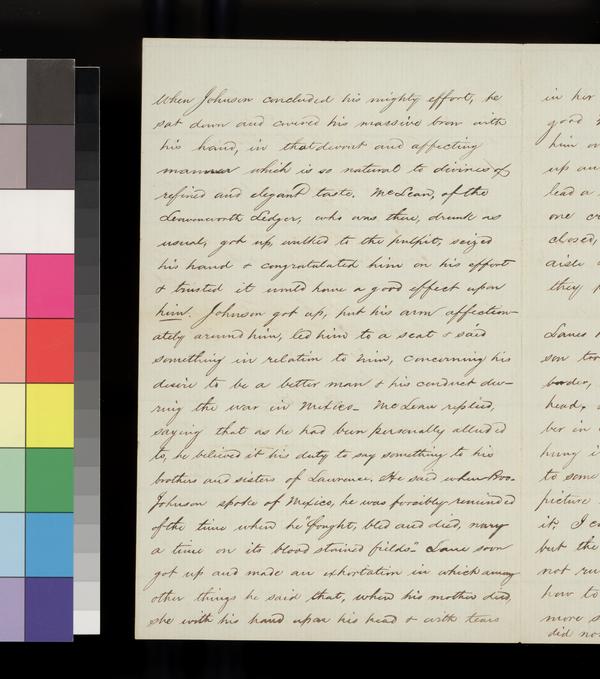 When Johnson concluded his mighty effort, he
sat down and covered his massive brow with
his hand, in that devout and affecting
manner which is so natural to divines of
refined and elegant taste. McLean, of the
Leavenworth Ledger, who was there, drunk as
usual, got up, walked to the pulpit, seized
his hand & congratulated him on his effort
& trusted it would have a good effect upon
him. Johnson got up, put his arm affection-
ately around him, led him to a seat & said
something in relation to him, concerning his
desire to be a better man & his conduct du-
ring the war in Mexico_ McLean replied,
saying that as he had been personally alluded
to, he believed it his duty to say something to his
brothers and sisters of Lawrence. He said when Bro.
Johnson spoke of Mexico, he was forcibly reminded
of the time when he "fought, bled and died, many
a time on its blood stained fields"_ Lane soon
got up and made an exhortation in which among
other things he said that, when his mother died,
she with his hand upon his head & with tears
in her
good
him
up
lead a
one
closed,
aisle
they
Lanes
son
border,
head,
ber in
hung i
to some
picture
it, I
but the
not
how to
more
did no